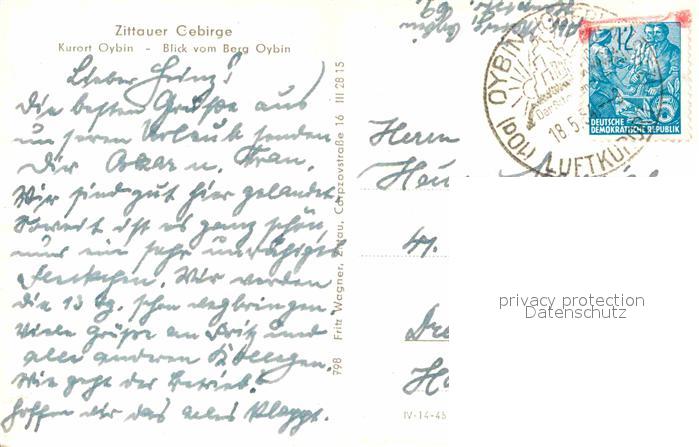 Zittauer Gebirge
Kurort Oybin - Blick vom Berg Oybin
Lieber Heinz!
Die besten Grüße aus
unserem Urlaub senden
Dir Oskar u. Frau.
Wir sind gut hier gelandet.
Soweit ist es ganz schön,
nur ein sehr unruhiges
Fleckchen. Wir werden
die 13 Tg. schon wegbringen.
Viele Grüße an Fritz und
alle anderen Kollegen.
Wie geht der Betrieb?
Hoffen wir das alles klappt.
798 Fritz Wagner, Zittau, Carpzovstraße 16 III 28 15
Herrn
IV-14-45
(10a) OYBIN
18.5.
LUFTKURORT
12
6
DEUTSCHE
DEMOKRATISCHE REPUBLIK
privacy protection
Datenschutz